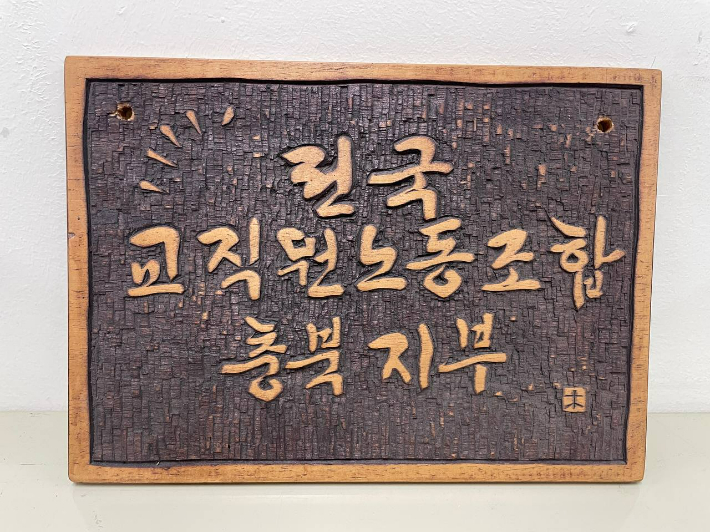 전국
교직원노동조합
충북지부